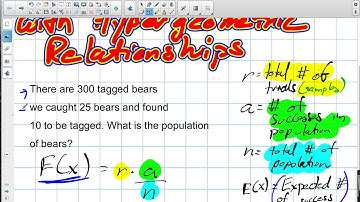 with Hypergeometric
Relationships
There are 300 tagged bears
we caught 25 bears and found
10 to be tagged. What is the population
of bears?
E(x) = r · a
n
r = total # of
trials (samples)
a = # of
successes in
population
n = total # of
population
E(x) = (Expected #
of success